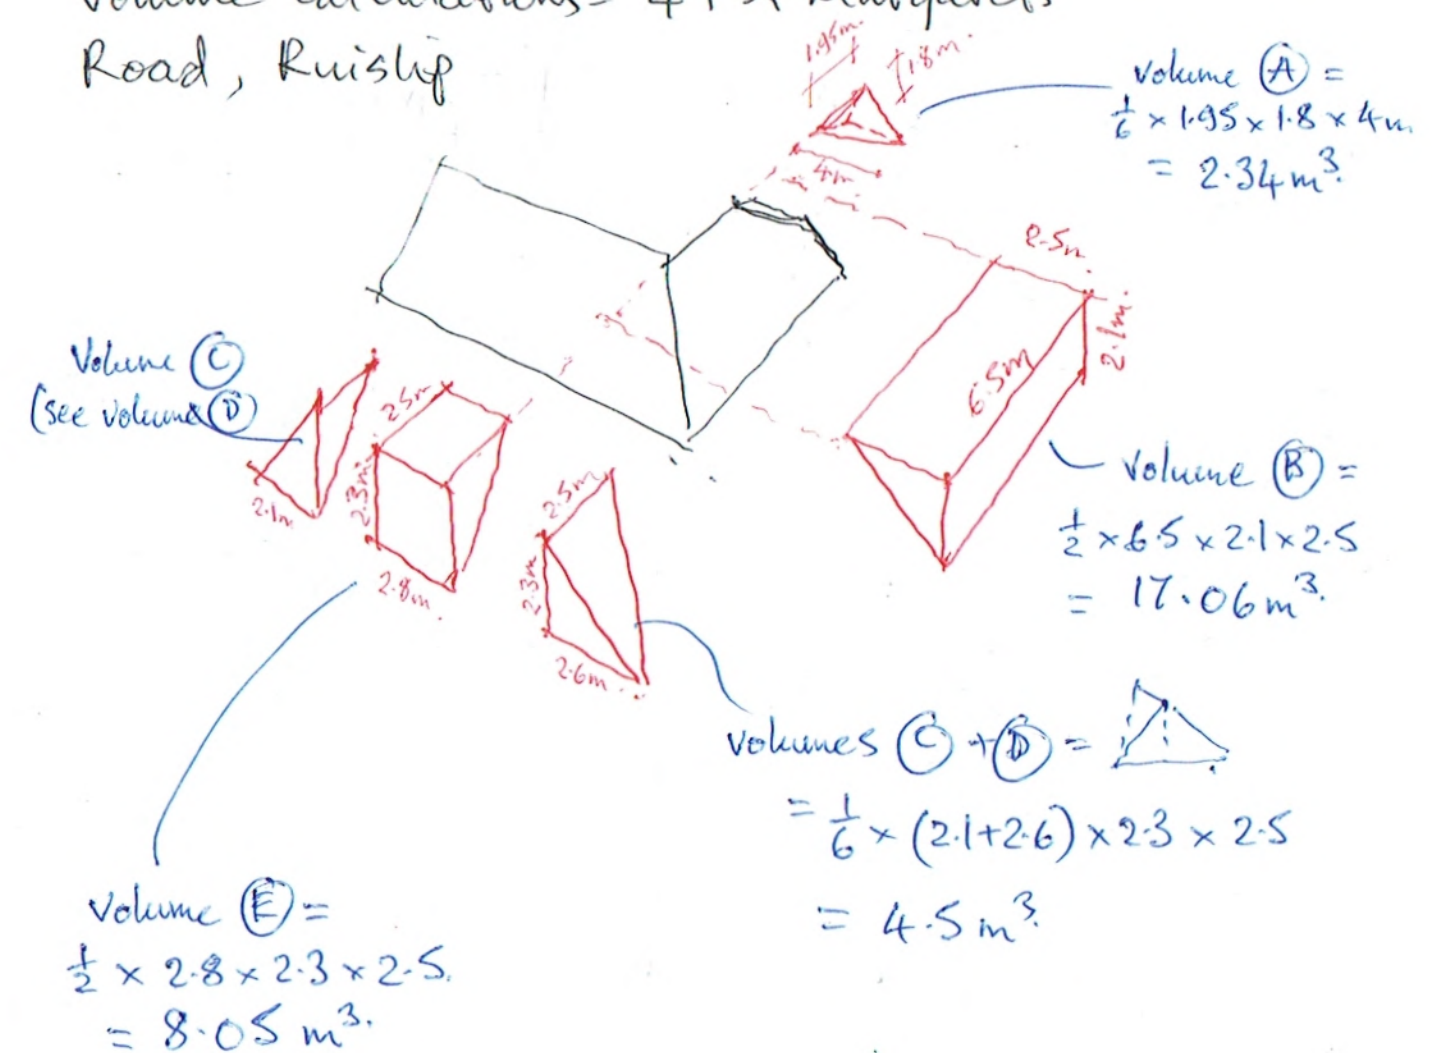 Road, Ruislip
1.95m.
1.8m.
4m
Volume A =
1/6 × 1.95 × 1.8 × 4m
= 2.34m³.
2.5m.
2.1m.
6.5m
Volume B =
1/2 × 6.5 × 2.1 × 2.5
= 17.06m³.
Volume C
(see volume D)
2.1m
2.5m
2.3m
2.8m.
2.5m
2.3m
2.6m.
Volumes C + D =
= 1/6 × (2.1+2.6) × 2.3 × 2.5
= 4.5m³.
Volume E =
1/2 × 2.8 × 2.3 × 2.5.
= 8.05 m³.